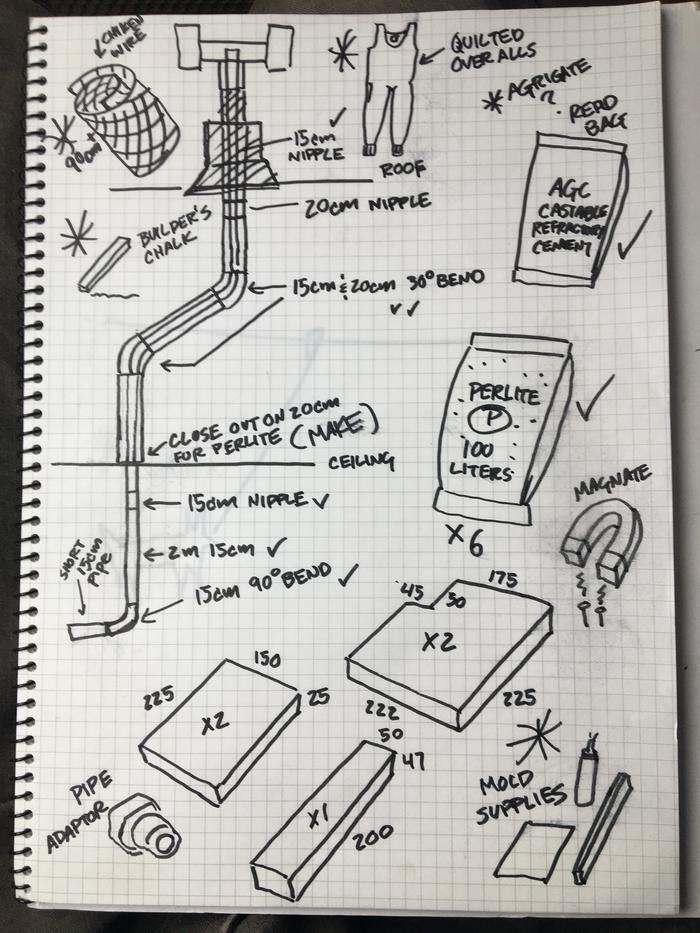 CHIKEN
WIRE
90cm
QUILTED
OVERALLS
AGRIGATE
?
READ
BAG
15cm
NIPPLE
ROOF
20cm NIPPLE
AGC
CASTABLE
REFRACTORY
CEMENT
BUILDER'S
CHALK
15cm & 20cm 30° BEND
CLOSE OUT ON 20cm
FOR PERLITE (MAKE)
CEILING
PERLITE
P
100
LITERS
X6
MAGNATE
15cm NIPPLE
2m 15cm
15cm 90° BEND
SHORT
15cm
PIPE
45
50
175
X2
222
225
150
225
25
X2
50
47
X1
200
PIPE
ADAPTOR
MOLD
SUPPLIES